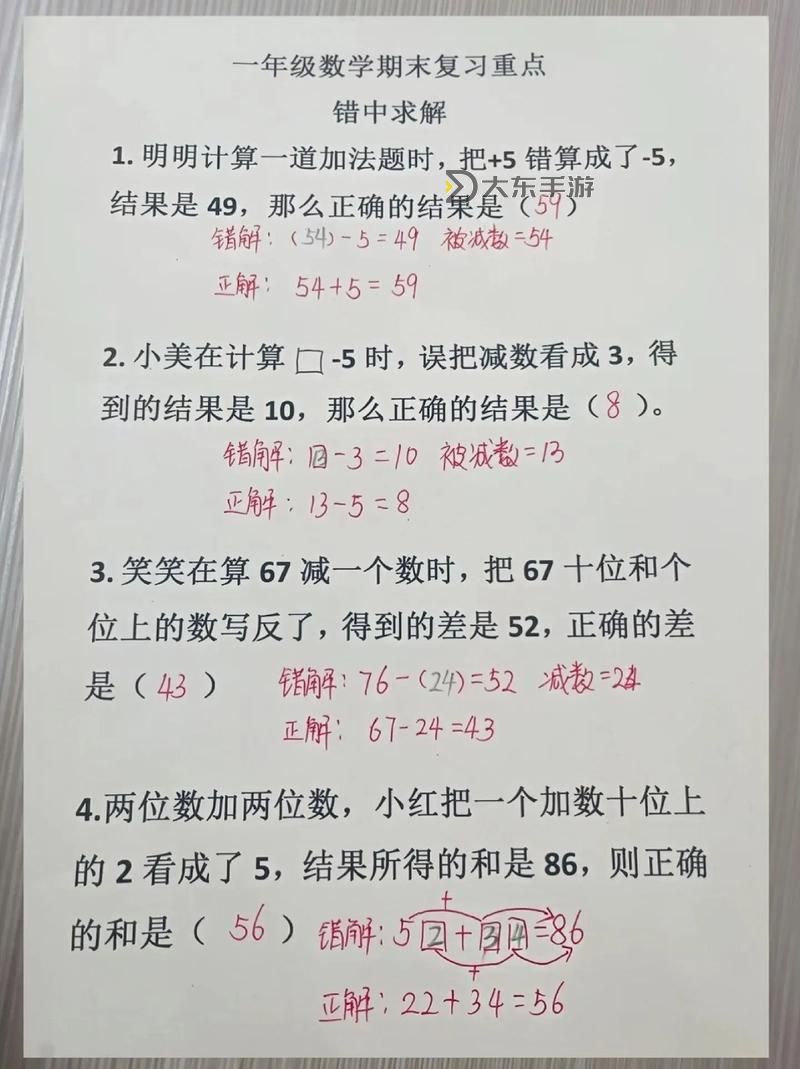 一年级数学期末复习重点
错中求解
1. 明明计算一道加法题时，把+5 错算成了-5，
大东手游
结果是 49，那么正确的结果是（59）
错解：（54）-5=49 被减数=54
正解： 54+5=59
2. 小美在计算 □ -5 时，误把减数看成 3，得
到的结果是 10，那么正确的结果是（8）。
错解：13-3=10 被减数=13
正解：13-5=8
3. 笑笑在算 67 减一个数时，把 67 十位和个
位上的数写反了，得到的差是 52，正确的差
是（43） 错解：76-（24）=52 减数=24
正解： 67-24=43
4.两位数加两位数，小红把一个加数十位上
的 2 看成了 5，结果所得的和是 86，则正确
+
的和是（56）错解：52+34=86
+
正解：22+34=56